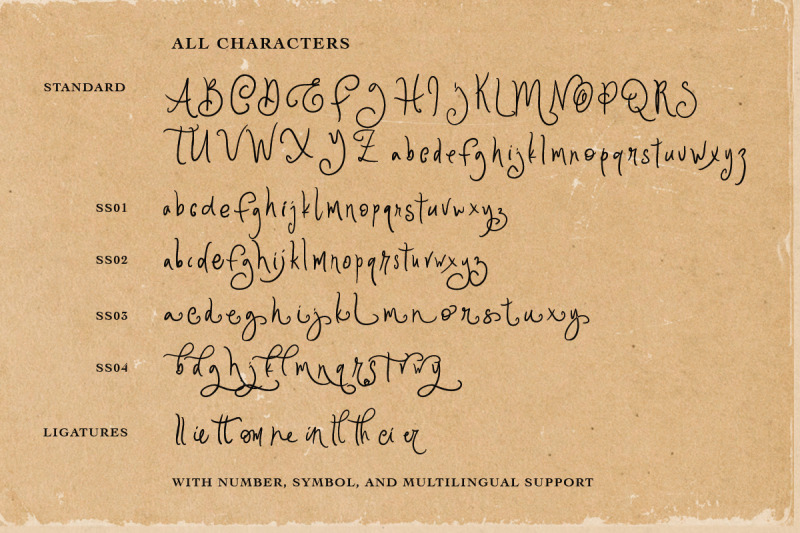 ALL CHARACTERS
STANDARD A B C D E F G H I J K L M N O P Q R S
T U V W X Y Z a b c d e f g h i j k l m n o p q r s t u v w x y z
SS01 a b c d e f g h i j k l m n o p q r s t u v w x y z
SS02 a b c d e f g h i j k l m n o p q r s t u v w x y z
SS03 a c d e g h i j k l m n o r s t u x y
SS04 b d g h j k l m n q r s t v w y
LIGATURES ll ie tt om re in tl th ei er
WITH NUMBER, SYMBOL, AND MULTILINGUAL SUPPORT